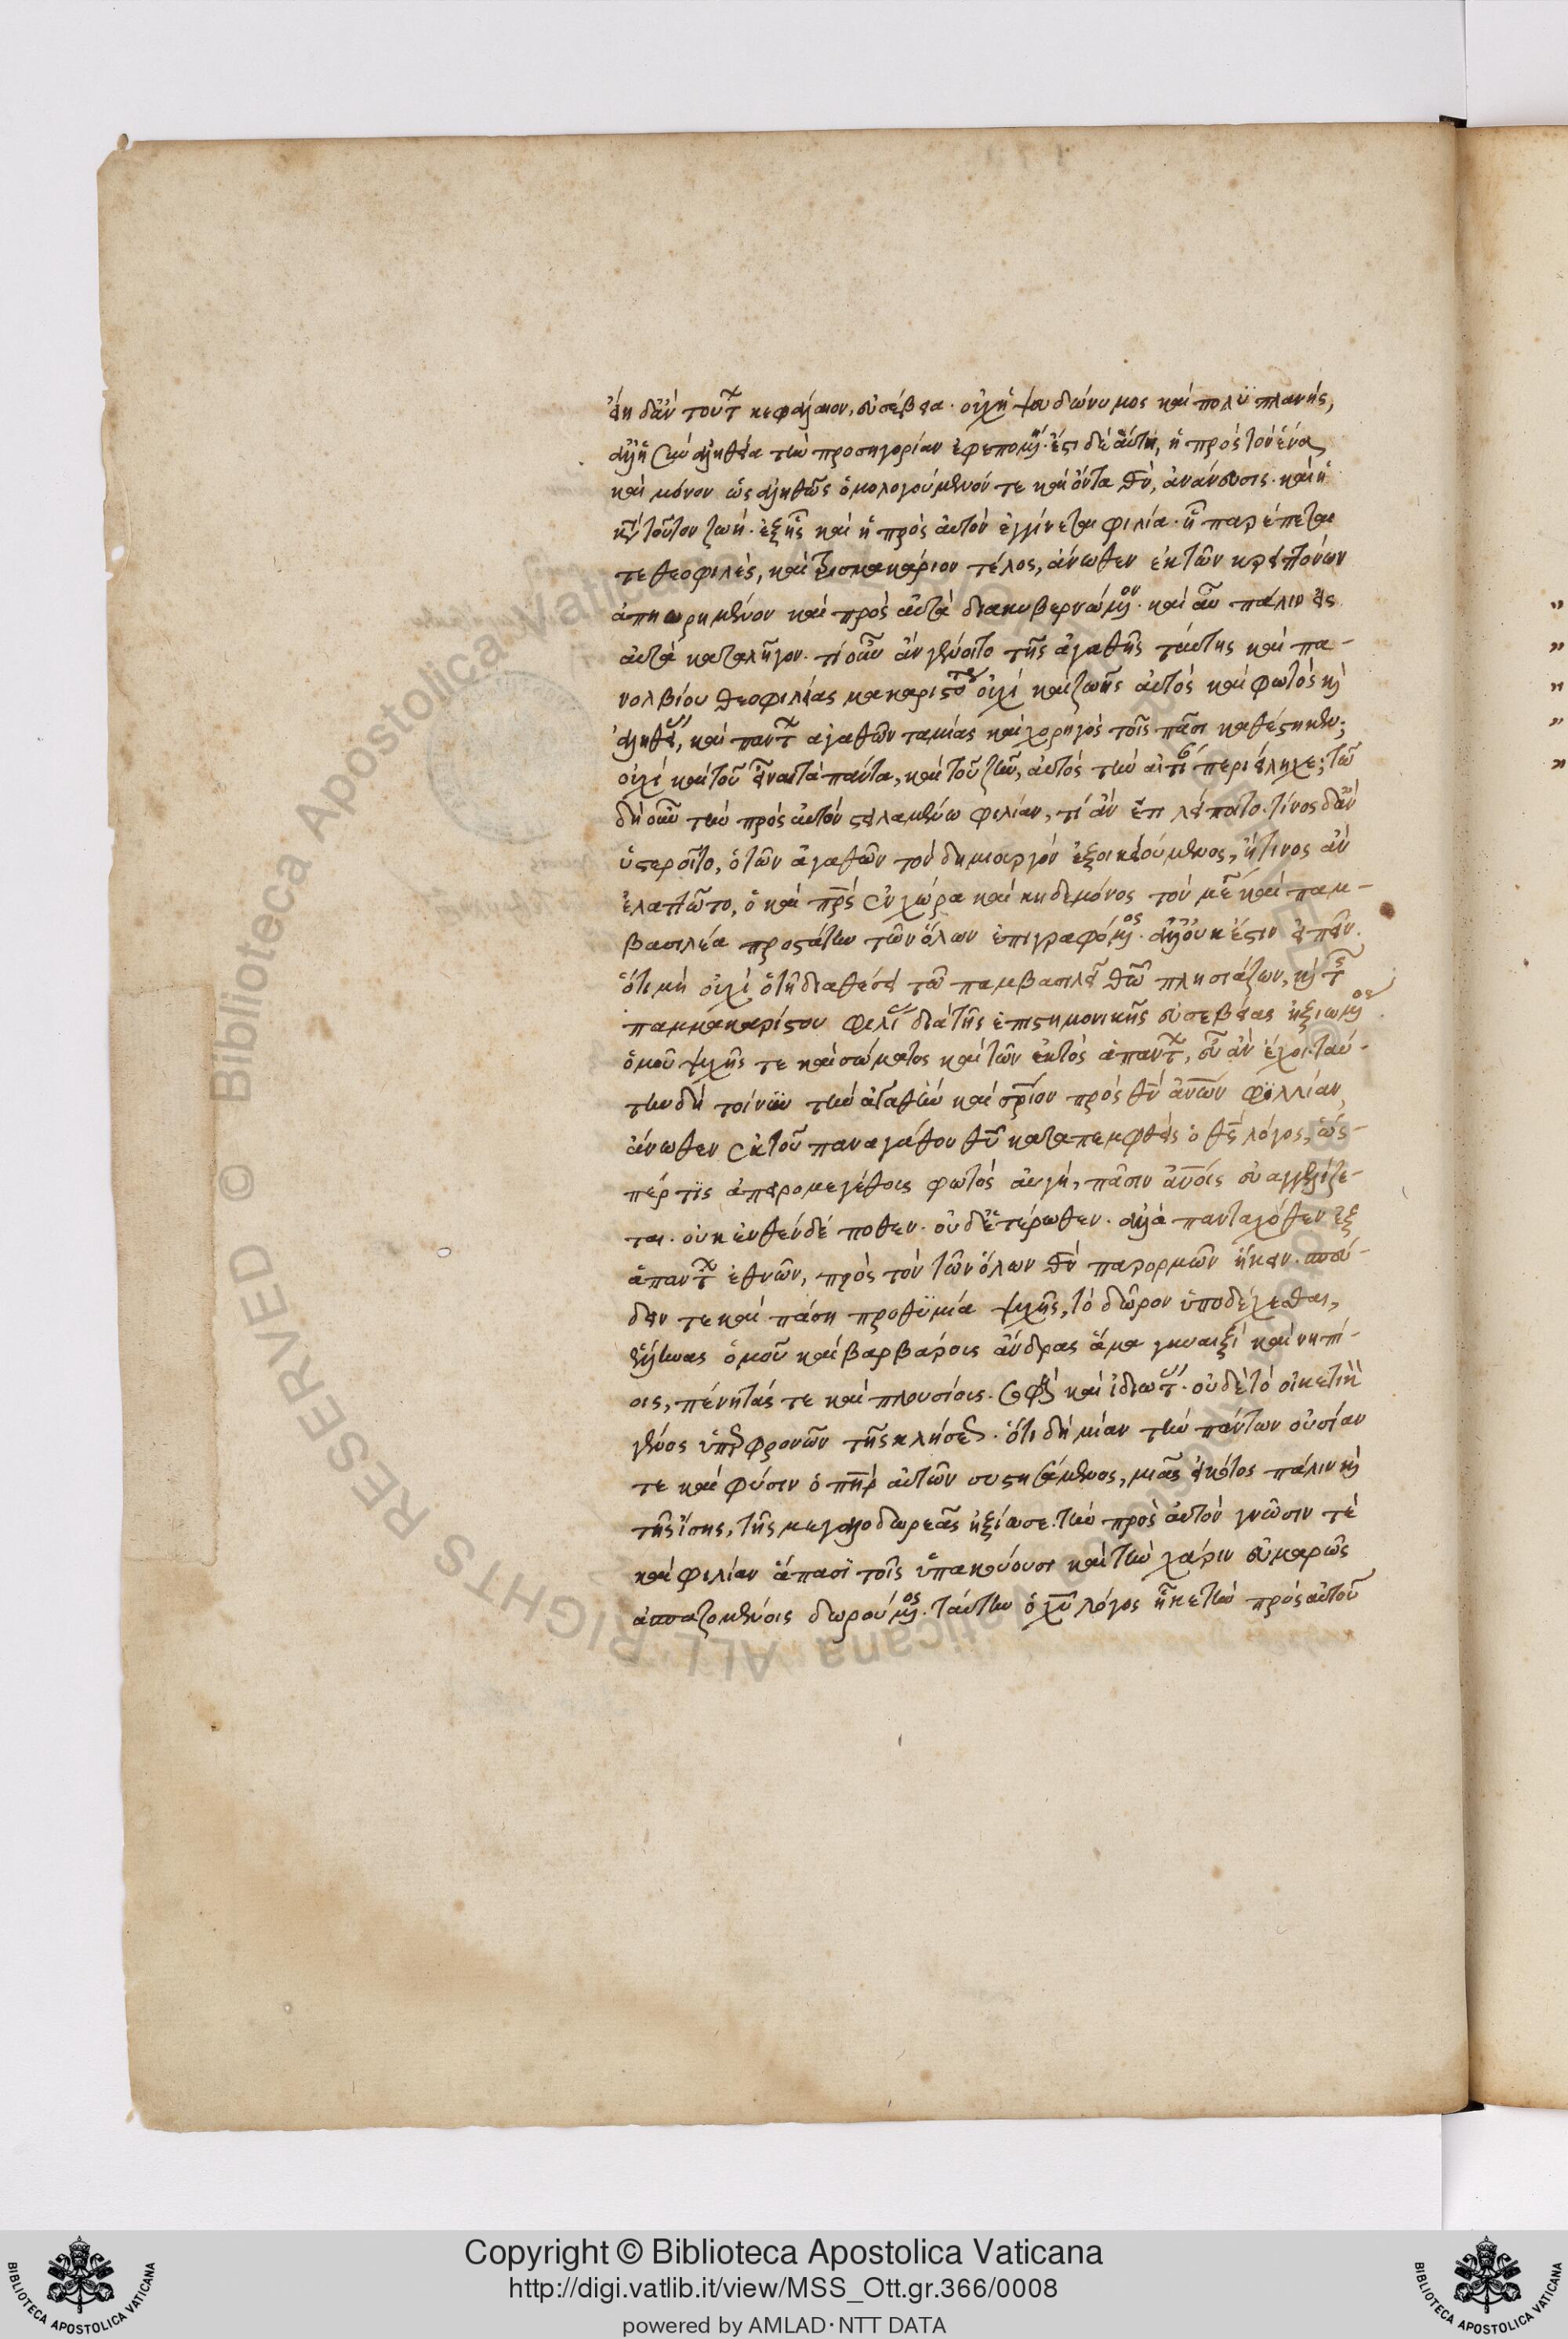 εἴη δ' ἂν τούτων κεφάλαιον, εὐσέβεια. οὐχ ἡ ψευδώνυμος καὶ πολυπλανής,
ἀλλ' ἡ σὺν ἀληθεία τὴν προσηγορίαν ἐφεπομένη. ἔστι δὲ αὕτη, ἡ πρὸς τὸν ἕνα
καὶ μόνον ὡς ἀληθῶς ὁμολογούμενόν τε καὶ ὄντα θν, ἀνάνευσις. καὶ ἡ
κατὰ τοῦτον ζωή. ἐξ ἧς καὶ ἡ πρὸς αὐτὸν ἐγγίνεται φιλία. ᾗ παρέπεται
τε θεοφιλὲς, καὶ τρισμακάριον τέλος, ἄνωθεν ἐκ τῶν κρειττόνων
ἀπηωρημένον καὶ πρὸς αὐτὰ διακυβερνώμενον. καὶ αὖ πάλιν εἰς
αὐτὰ καταλῆγον. τί οὖν ἂν γένοιτο τῆς ἀγαθῆς ταύτης καὶ πα-
νολβίου θεοφιλίας μακαριστότερον οὐχὶ καὶ ζωῆς αὐτὸς καὶ φωτὸς καὶ
ἀληθείας, καὶ πάντων ἀγαθῶν ταμίας καὶ χορηγὸς τοῖς πᾶσι καθέστηκεν;
οὐχὶ καὶ τοῦ εἶναι τὰ πάντα, καὶ τοῦ ζῆν, αὐτὸς τὴν αἰτίαν περιείληχε; τῶ
δὴ οὖν τὴν πρὸς αὐτὸν στειλαμένω φιλίαν, τί ἂν ἔτι λείποιτο. τίνος δ' ἂν
ὑστεροῖτο, ὁ τῶν ἀγαθῶν τὸν δημιουργὸν ἐξοικειούμενος, ἤ τινος ἂν
ἐλαττῶτο, ὁ καὶ πρς ἐν χώρα καὶ κηδεμόνος τὸν μέγαν καὶ παμ-
βασιλέα προστάτην τῶν ὅλων ἐπιγραφόμενος. ἀλλ' οὐκ ἔστιν εἰπεῖν.
ὅτι μὴ οὐχὶ ὁ τῆ διαθέσει τῶ παμβασιλεῖ θῶ πλησιάζων, καὶ τῆς
παμμακαρίστου φιλίας διὰ τῆς ἐπιστημονικῆς εὐσεβείας ἠξιωμένος
ὁμοῦ ψυχῆς τε καὶ σώματος καὶ τῶν ἐκτὸς ἁπάντων, εὖ ἂν ἔχοι. ταύ-
την δὴ τοίνυν τὴν ἀγαθὴν καὶ σρῖον πρὸς θν ἀνων φιλλίαν,
ἄνωθεν ἐκ τοῦ παναγάθου θυ καταπεμφθεὶς ὁ θς λόγος, ὥσ-
περ τις ἀπειρομεγέθους φωτὸς αὐγὴ, πᾶσιν ἀνοις εὐαγγελίζε-
ται. οὐκ ἐνθένδέ ποθεν. οὐδ' ἑτέρωθεν. ἀλλὰ πανταχόθεν ἐξ
ἁπάντων ἐθνῶν, πρὸς τὸν τῶν ὅλων θν παρορμῶν ἥκειν. σπεύ-
δειν τε καὶ πάση προθυμία ψυχῆς, τὸ δῶρον ὑποδέχεσθαι,
ἕλληνας ὁμοῦ καὶ βαρβάρους ἄνδρας ἅμα γυναιξὶ καὶ νηπί-
οις, πένητάς τε καὶ πλουσίους. σοφοὺς καὶ ἰδιώτας. οὐδὲ τὸ οἰκετικὸν
γένος ὑπερφρονῶν τῆς κλήσεως. ὅτι δὴ μίαν τὴν πάντων οὐσίαν
τε καὶ φύσιν ὁ πηρ αὐτῶν συστησάμενος, μιᾶς εἰκότως πάλιν καὶ
τῆς ἴσης, τῆς μεγαλοδωρεᾶς ἠξίωσε. τὴν πρὸς αὐτὸν γνῶσιν τὲ
καὶ φιλίαν ἅπασι τοῖς ὑπακούουσι καὶ τὴν χάριν εὐμαρῶς
ἀσπαζομένοις δωρούμενος. ταύτην ὁ χυ λόγος ἧκε τὴν πρὸς αὐτοῦ
Copyright © Biblioteca Apostolica Vaticana
http://digi.vatlib.it/view/MSS_Ott.gr.366/0008
powered by AMLAD·NTT DATA
BIBLIOTECA APOSTOLICA VATICANA
BIBLIOTECA APOSTOLICA VATICANA